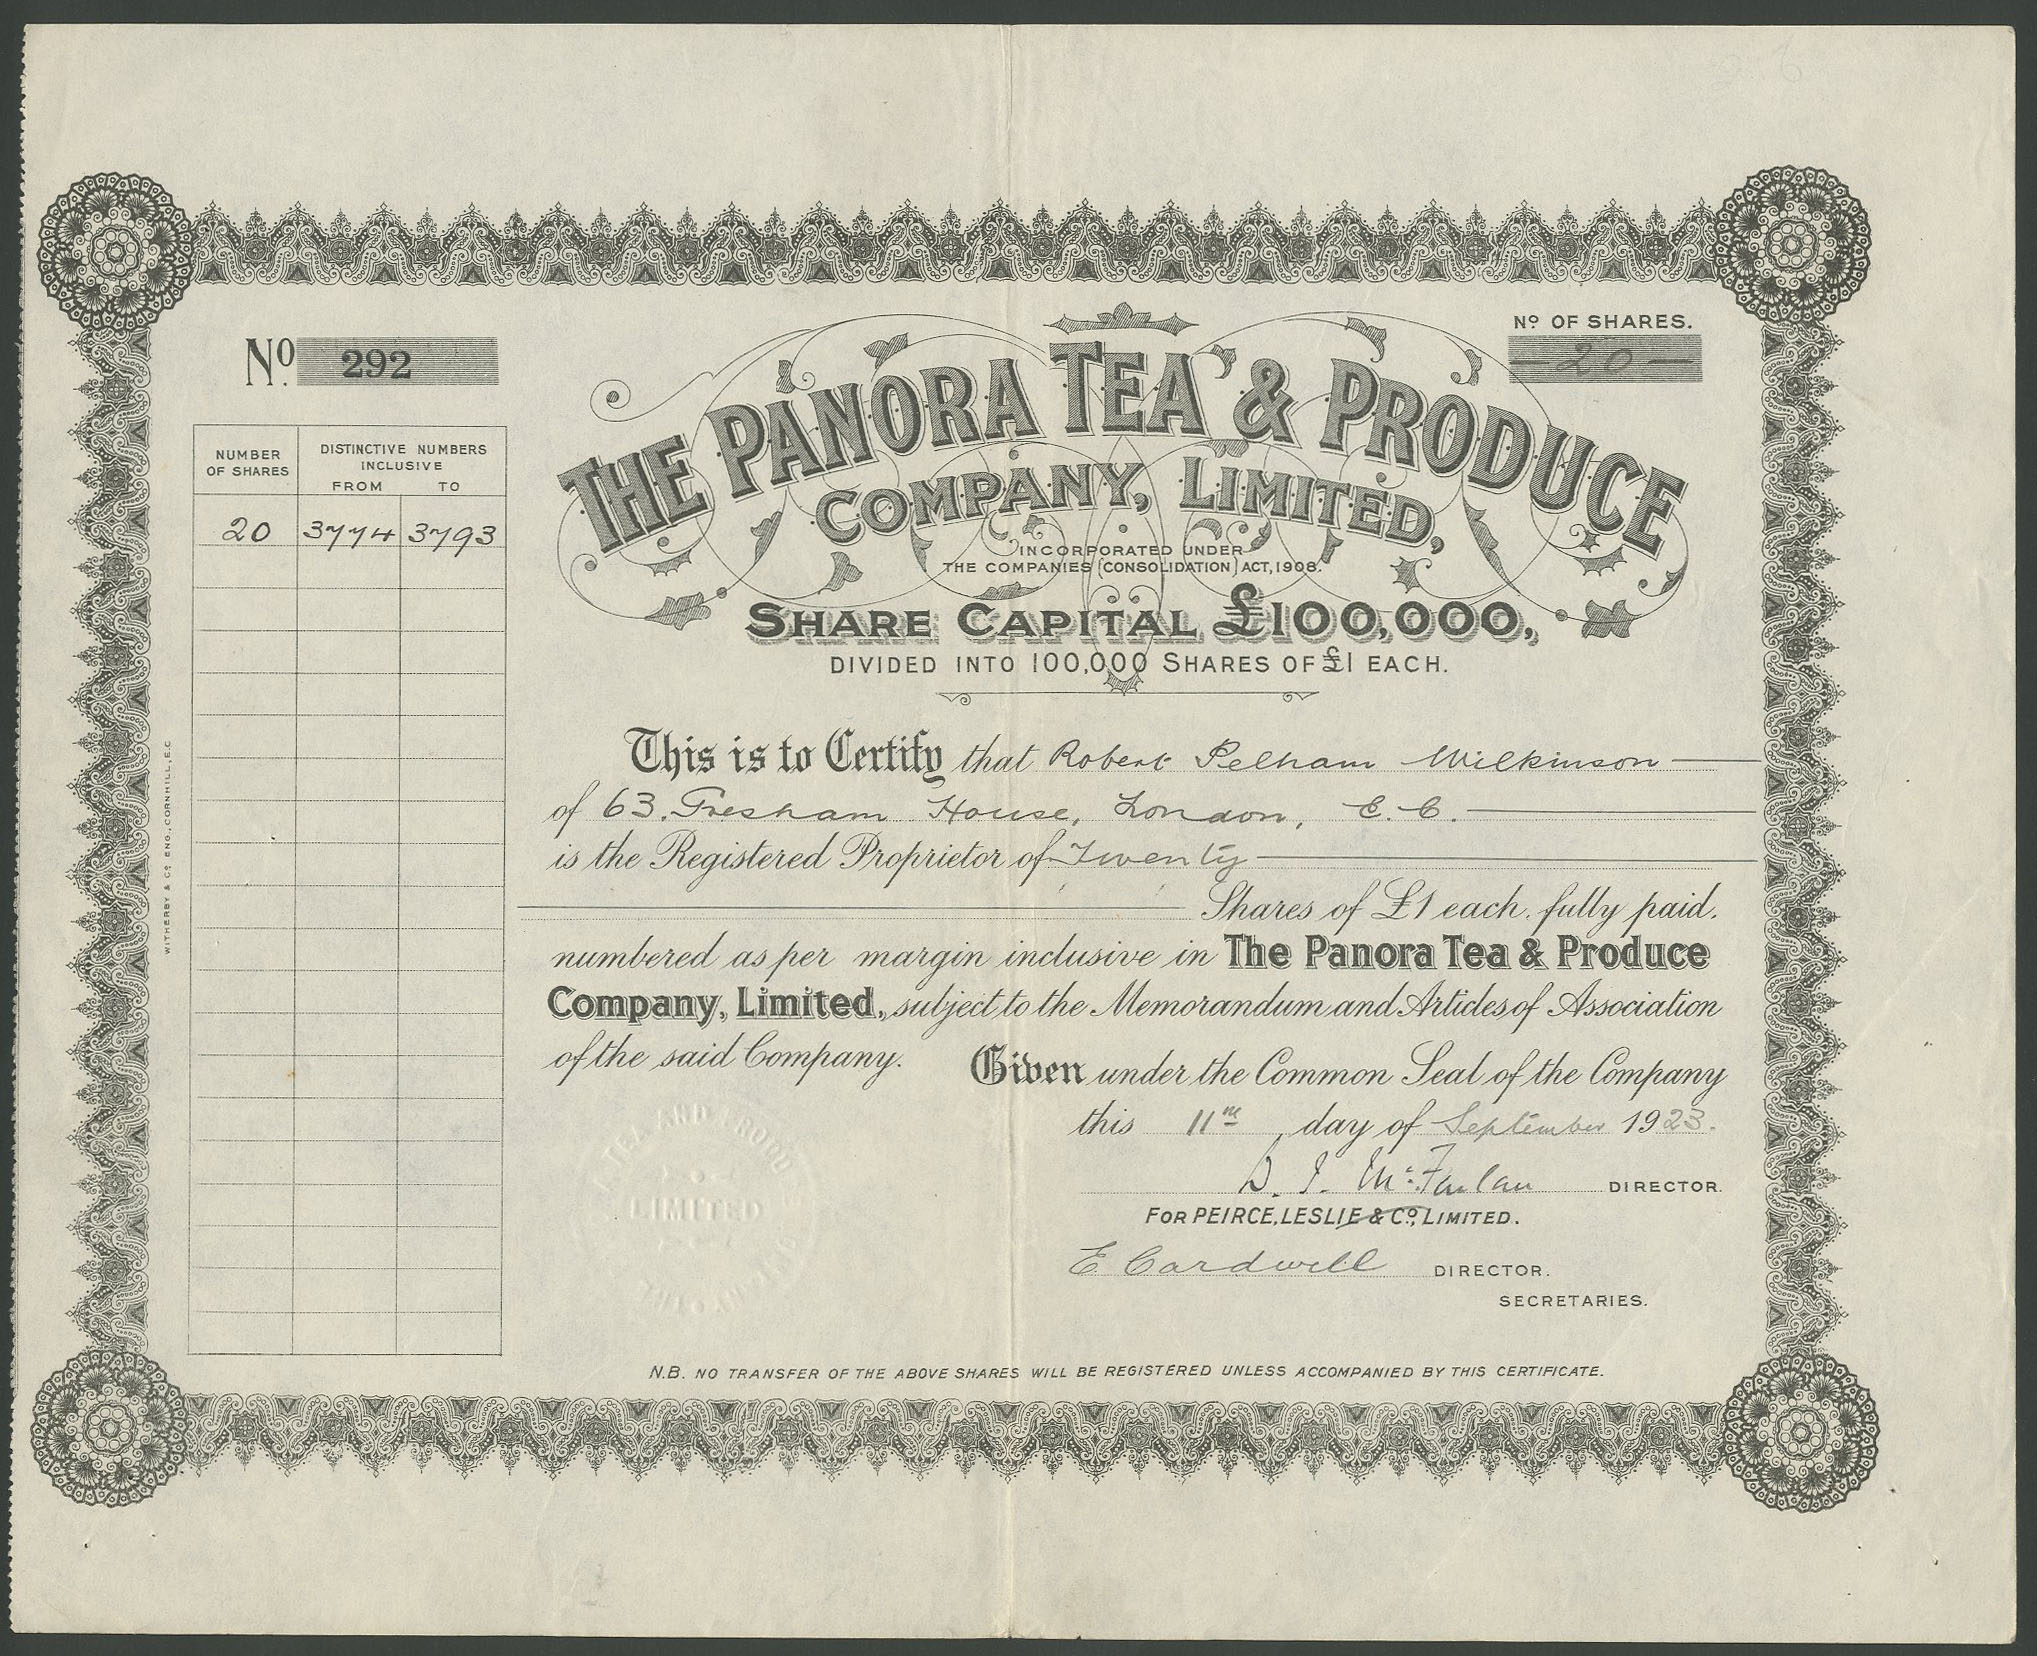 No. 292
No. OF SHARES.
— 20 —
THE PANORA TEA & PRODUCE
COMPANY, LIMITED,
INCORPORATED UNDER
THE COMPANIES (CONSOLIDATION) ACT, 1908.
SHARE CAPITAL £100,000,
DIVIDED INTO 100,000 SHARES OF £1 EACH.
NUMBER OF SHARES
DISTINCTIVE NUMBERS INCLUSIVE
FROM TO
20 3774 3793
WITHERBY & Co. ENG., CORNHILL, E.C
This is to Certify that Robert Pelham Wilkinson
of 63. Gresham House, London, E.C.
is the Registered Proprietor of Twenty
Shares of £1 each. fully paid.
numbered as per margin inclusive in The Panora Tea & Produce
Company, Limited., subject to the Memorandum and Articles of Association
of the said Company. Given under the Common Seal of the Company
this 11th day of September 1923.
DIRECTOR.
FOR PEIRCE, LESLIE & Co., LIMITED.
E Cardwell DIRECTOR.
SECRETARIES.
TEA AND PRODU
LIMITED
N.B. NO TRANSFER OF THE ABOVE SHARES WILL BE REGISTERED UNLESS ACCOMPANIED BY THIS CERTIFICATE.